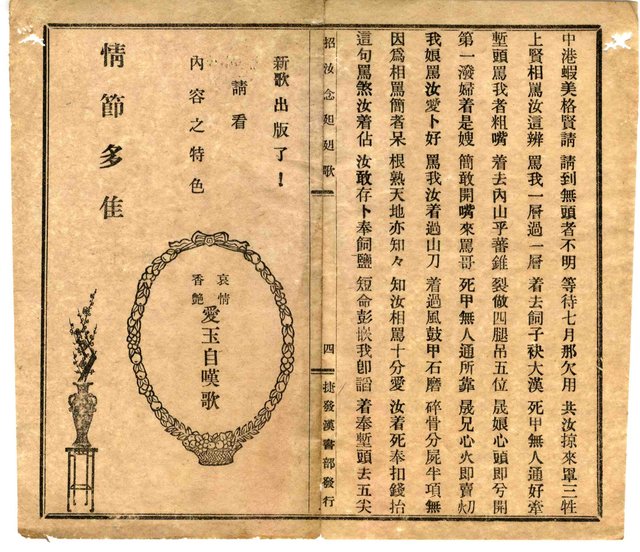 中港蝦美格賢請 請到無頭者不明 等待七月那欠用 共汝掠來罩三牲
上賢相罵汝這辨 罵我一層過一層 着去飼子袂大漢 死甲無人通好牽
塹頭罵我者粗嘴 着去內山乎蕃錐 裂做四腿吊五位 晟娘心頭即兮開
第一潑婦着是嫂 簡敢開嘴來罵哥 死甲無人通所靠 晟兄心火即賣
我娘罵汝愛卜好 罵我汝着過山刀 着過風鼓甲石磨 碎骨分屍半項無
因為相罵簡者呆 根熟天地亦知々 知汝相罵十分愛 汝着死奉扣錢抬
這句罵煞汝着估 汝敢存卜奉飼鹽 短命彭嵌我卽謟 着奉塹頭去五尖
招汝念廻廻歌 四 捷發漢書部發行
新歌出版了！
請看
內容之特色
哀情
香艷
愛玉自嘆歌
情節多佳